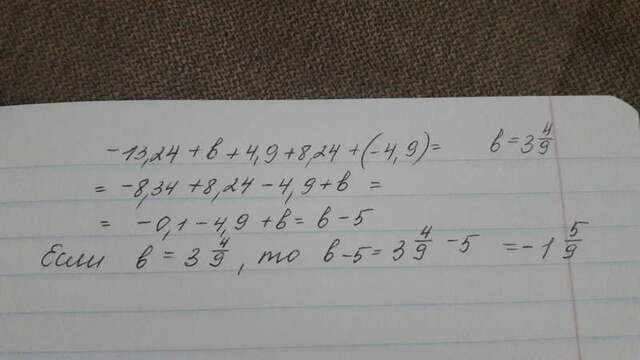 -13,24 + в + 4,9 + 8,24 + (-4,9) = в = 3 4/9
= -8,34 + 8,24 - 4,9 + в =
= -0,1 - 4,9 + в = в - 5
Если в = 3 4/9, то в - 5 = 3 4/9 - 5 = -1 5/9